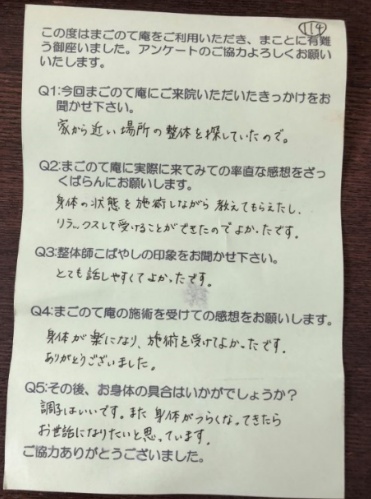 119
この度はまごのて庵をご利用いただき、まことに有難
う御座いました。アンケートのご協力よろしくお願い
いたします。
Q1:今回まごのて庵にご来院いただいたきっかけをお
聞かせ下さい。
家から近い場所の整体を探していたので。
Q2:まごのて庵に実際に来てみての率直な感想をざっ
くばらんにお願いします。
身体の状態を施術しながら教えてもらえたし、
リラックスして受けることができたのでよかったです。
Q3:整体師こばやしの印象をお聞かせ下さい。
とても話しやすくてよかったです。
Q4:まごのて庵の施術を受けての感想をお願いします。
身体が楽になり、施術を受けてよかったです。
ありがとうございました。
Q5:その後、お身体の具合はいかがでしょうか?
調子はいいです。また身体がつらくなってきたら
お世話になりたいと思っています。
ご協力ありがとうございました。